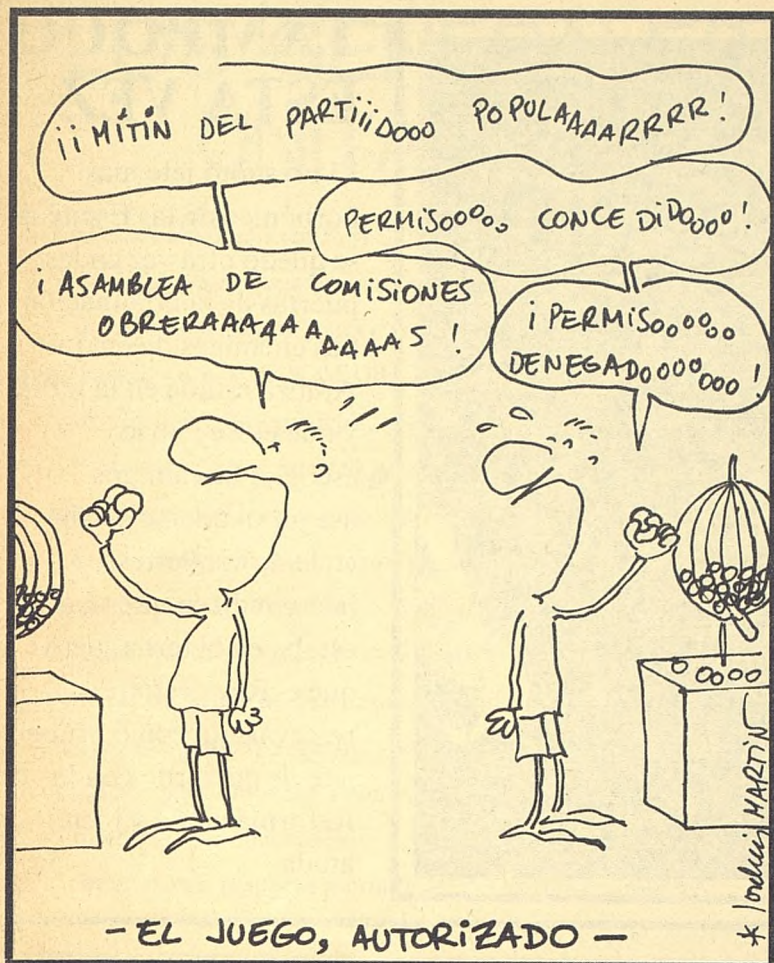 ¡¡MÍTIN DEL PARTIIIDOOO POPULAAAARRRR!
PERMISOOOOO, CONCEDIDOOOO!
¡ASAMBLEA DE COMISIONES
OBRERAAAAAAAAAAS!
¡PERMISOOOOOO
DENEGADOOOOOOO!
* MARTÍN
- EL JUEGO, AUTORIZADO -